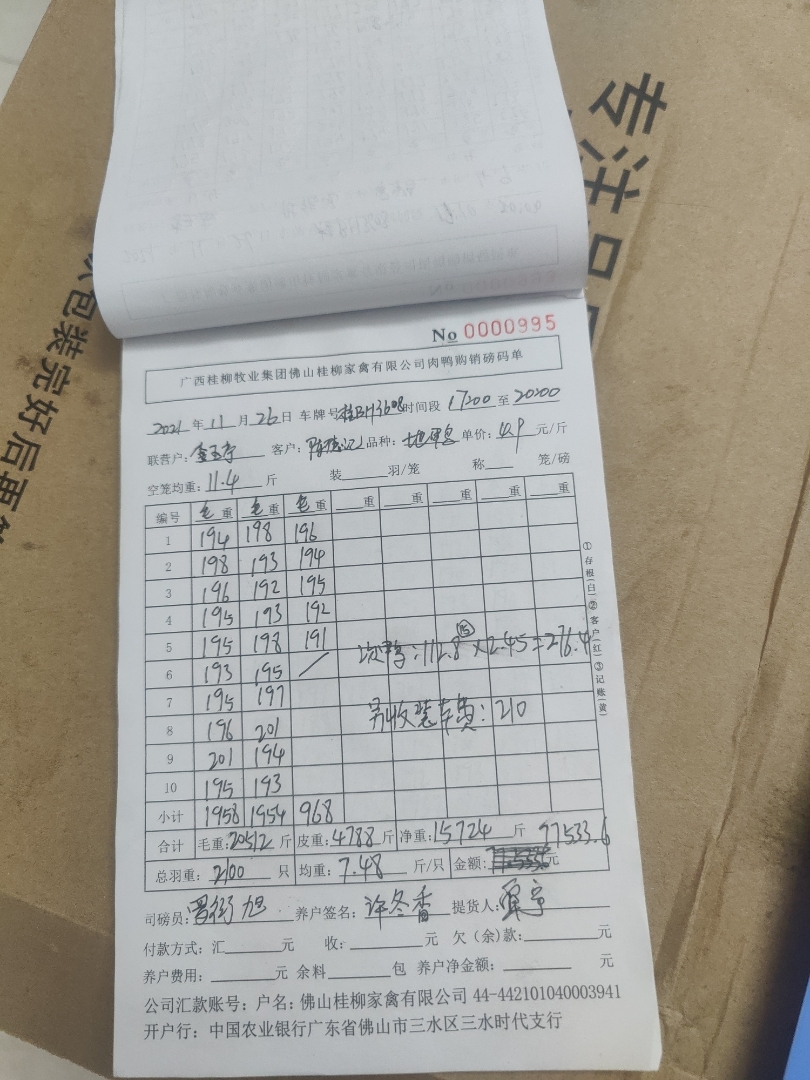 专注品
包装完好后再
No 0000995
广西桂柳牧业集团佛山桂柳家禽有限公司肉鸭购销磅码单
2021 年 11 月 26 日 车牌号 时间段 17200 至 20200
联营户: 客户: 品种: 单价: 4.9 元/斤
空笼均重: 11.4 斤 装 羽/笼 称 笼/磅
编号 毛重 毛重 毛重 重 重 重 重 重
1 194 198 196
2 198 193 194
3 196 192 195
4 195 193 192
5 195 198 191
次鸭: 112.8 ⑮ ×2.45=276.4
6 193 195 /
7 195 197
另收装车费: 210
8 196 201
9 201 194
10 195 193
小计 1958 1954 968
合计 毛重: 20512 斤 皮重: 4788 斤 净重: 15724 斤 77533.6
总羽重: 2100 只 均重: 7.48 斤/只 金额: 元
司磅员: 养户签名: 许冬香 提货人:
付款方式: 汇 元 收: 元 欠(余)款: 元
养户费用: 元 余料 包 养户净金额: 元
公司汇款账号: 户名: 佛山桂柳家禽有限公司 44-442101040003941
开户行: 中国农业银行广东省佛山市三水区三水时代支行
①存根(白)②客户(红)③记账(黄)